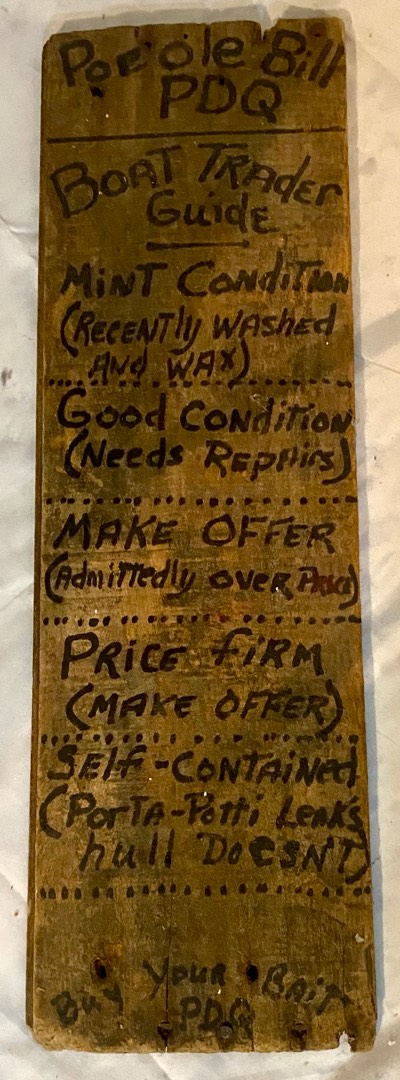 Poe ole Bill
PDQ
BOAT TRAder
GuidE
MiNT CoNDiTION
(RECENTly WASHED
ANd WAX)
Good CONDiTiON
(Needs REpAirs)
MAKE OFFER
(AdmiTTEdly OVER Priced)
PRiCE fiRM
(MAKE OFFER)
SElf-CONTAiNEd
(PorTA-PoTTi LEAKs
hull DoESN'T)
Buy YOUR BAiT
PDQ